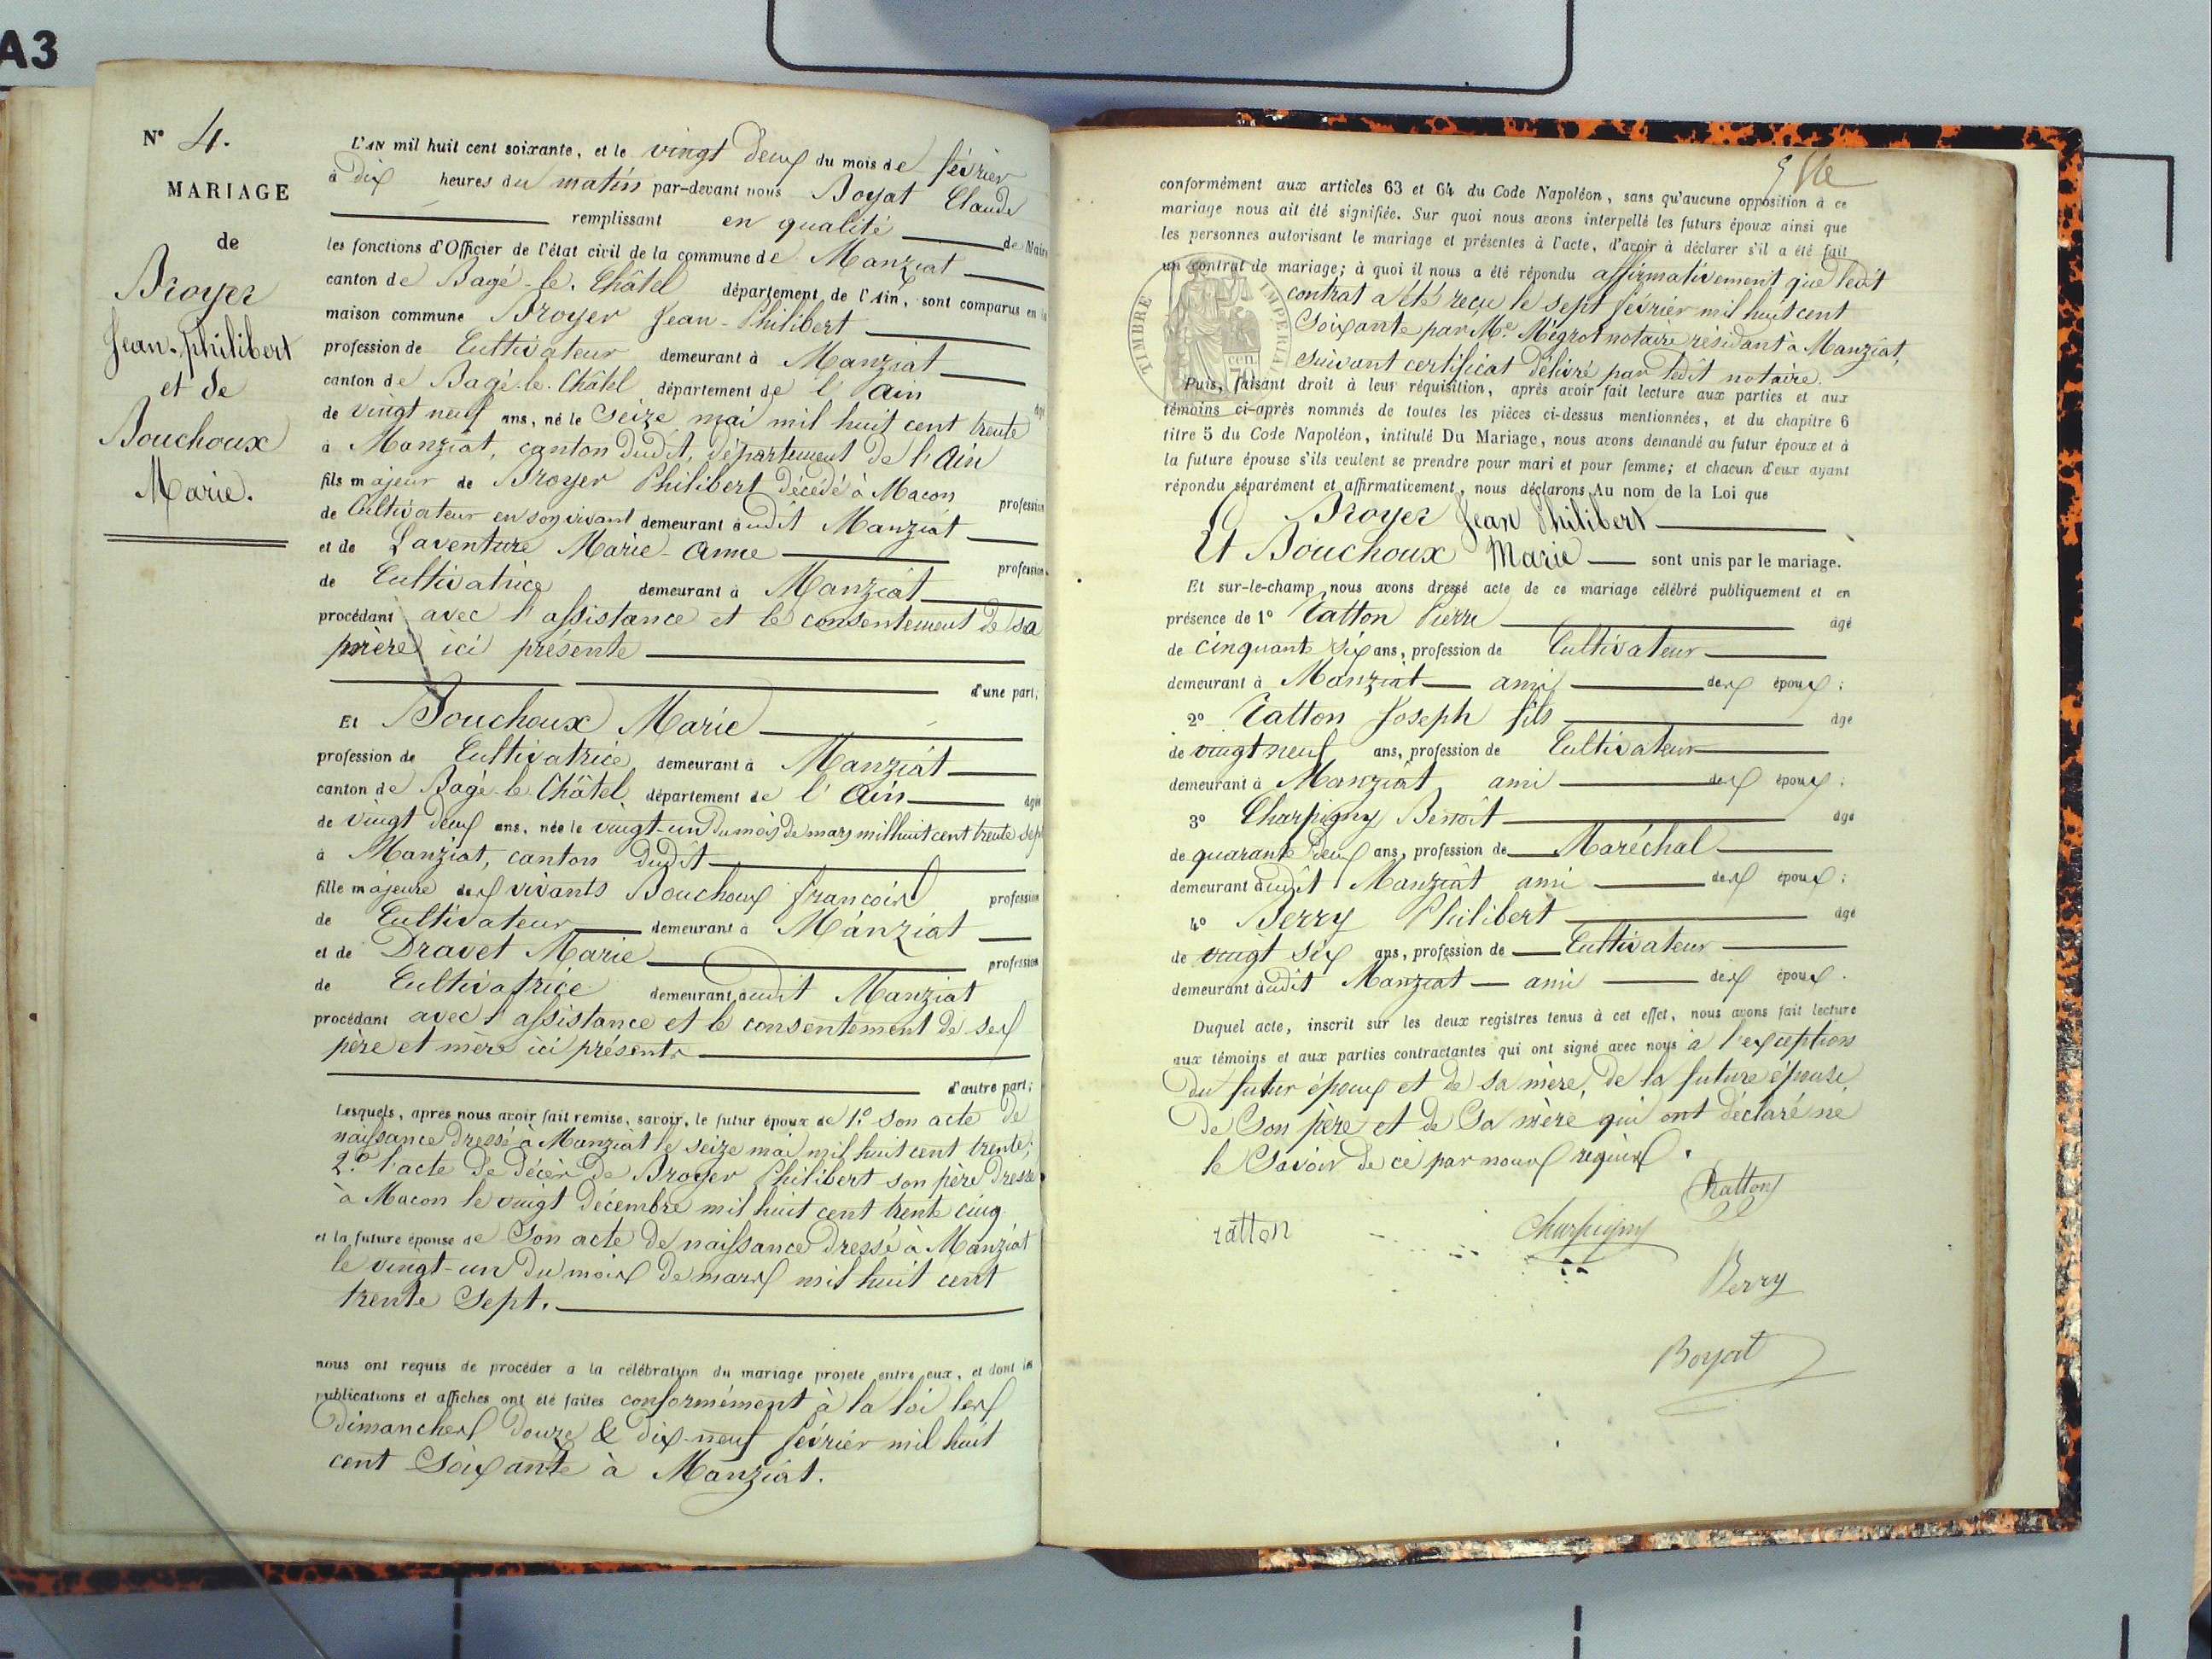 A3
N° 4.
MARIAGE
de
Broyer
Jean-philibert
et de
Bouchoux
Marie.
L'AN mil huit cent soixante, et le vingt deux du mois de février
à dix heures du matin par-devant nous Boyat Claude
remplissant en qualité de Maire
les fonctions d'Officier de l'état civil de la commune de Manziat
canton de Bagé-le-Châtel département de l'Ain, sont comparus en la
maison commune Broyer Jean-Philibert
profession de Cultivateur demeurant à Manziat
canton de Bagé-le-Châtel département de l'Ain
âgé
de vingt neuf ans, né le seize mai mil huit cent trente
à Manziat, canton dudit, département de l'Ain
fils majeur de Broyer Philibert décédé à Macon profession
de Cultivateur en son vivant demeurant audit Manziat
et de Laventure Marie-Anne profession
de Cultivatrice demeurant à Manziat
procédant avec l'assistance et le consentement de sa
mère ici présente
d'une part;
Et Bouchoux Marie
profession de Cultivatrice demeurant à Manziat
canton de Bagé-le-Châtel département de l'Ain âgée
de vingt deux ans, née le vingt-un du mois de mars mil huit cent trente sept
à Manziat, canton dudit
fille majeure des vivants Bouchoux françois profession
de Cultivateur demeurant à Manziat
et de Dravet Marie profession
de Cultivatrice demeurant audit Manziat
procédant avec l'assistance et le consentement de ses
père et mère ici présents
d'autre part;
Lesquels, après nous avoir fait remise, savoir, le futur époux de 1.° son acte de
naissance dressé à Manziat le seize mai mil huit cent trente;
2.° l'acte de décès de Broyer Philibert son père dressé
à Macon le vingt décembre mil huit cent trente cinq
et la future épouse de Son acte de naissance dressé à Manziat
le vingt-un du mois de mars mil huit cent
trente Sept.
nous ont requis de procéder à la célébration du mariage projeté entre eux, et dont les
publications et affiches ont été faites conformément à la loi les
dimanches douze & dix-neuf février mil huit
cent Soixante à Manziat.
conformément aux articles 63 et 64 du Code Napoléon, sans qu'aucune opposition à ce
mariage nous ait été signifiée. Sur quoi nous avons interpellé les futurs époux ainsi que
les personnes autorisant le mariage et présentes à l'acte, d'avoir à déclarer s'il a été fait
un contrat de mariage; à quoi il nous a été répondu affirmativement que ledit
contrat a été reçu le sept février mil huit cent
Soixante par Me. Mégrot notaire résidant à Manziat,
suivant certificat délivré par ledit notaire.
TIMBRE IMPERIAL
Puis, faisant droit à leur réquisition, après avoir fait lecture aux parties et aux
témoins ci-après nommés de toutes les pièces ci-dessus mentionnées, et du chapitre 6
titre 5 du Code Napoléon, intitulé Du Mariage, nous avons demandé au futur époux et à
la future épouse s'ils veulent se prendre pour mari et pour femme; et chacun d'eux ayant
répondu séparément et affirmativement, nous déclarons Au nom de la Loi que
Broyer Jean Philibert
Et Bouchoux Marie sont unis par le mariage.
Et sur-le-champ nous avons dressé acte de ce mariage célébré publiquement et en
présence de 1° Catton Pierre âgé
de cinquante six ans, profession de Cultivateur
demeurant à Manziat ami des époux;
2° Catton Joseph fils âgé
de vingt neuf ans, profession de Cultivateur
demeurant à Manziat ami des époux;
3° Charpigny Benoît âgé
de quarante deux ans, profession de Maréchal
demeurant audit Manziat ami des époux;
4° Berry Philibert âgé
de vingt six ans, profession de Cultivateur
demeurant audit Manziat ami des époux.
Duquel acte, inscrit sur les deux registres tenus à cet effet, nous avons fait lecture
aux témoins et aux parties contractantes qui ont signé avec nous à l'exception
du futur époux et de sa mère, de la future épouse,
de Son père et de Sa mère qui ont déclaré ne
le Savoir de ce par nous requis.
Catton
catton
Charpigny
Berry
Boyat